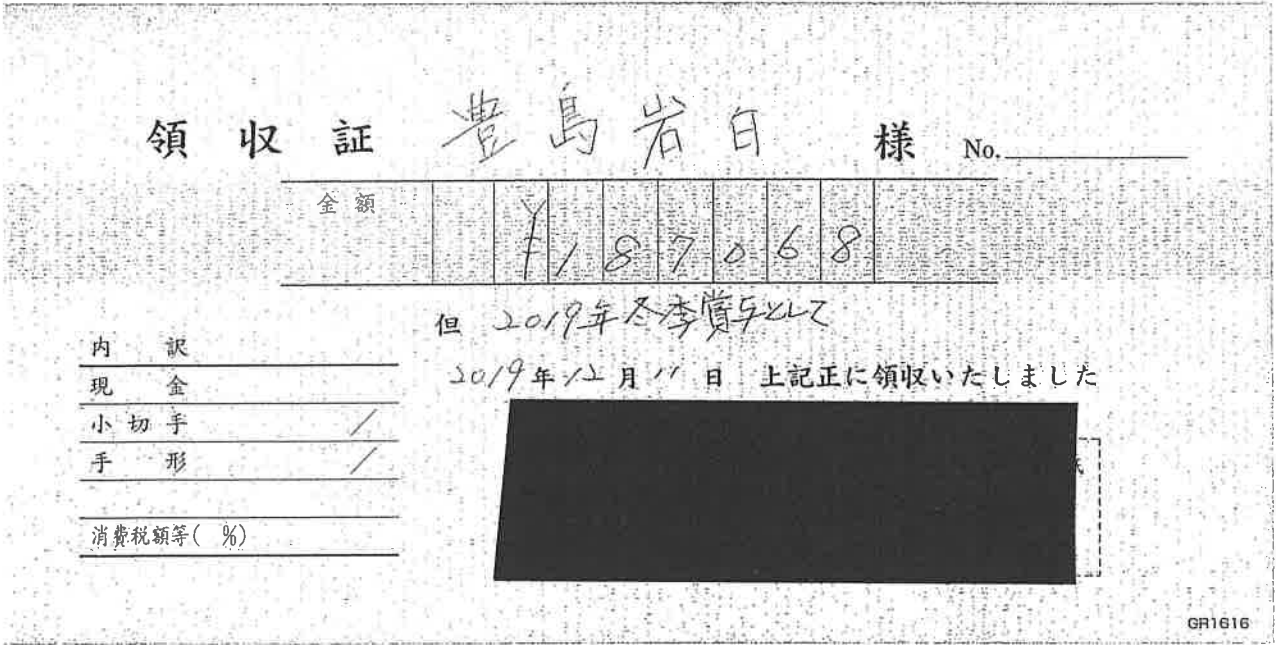 領収証 豊島岩白 様 No.
金額 ¥187068
但 2019年冬季賞与として
2019年12月11日 上記正に領収いたしました
内訳
現金
小切手 /
手形 /
消費税額等( %)
GR1616